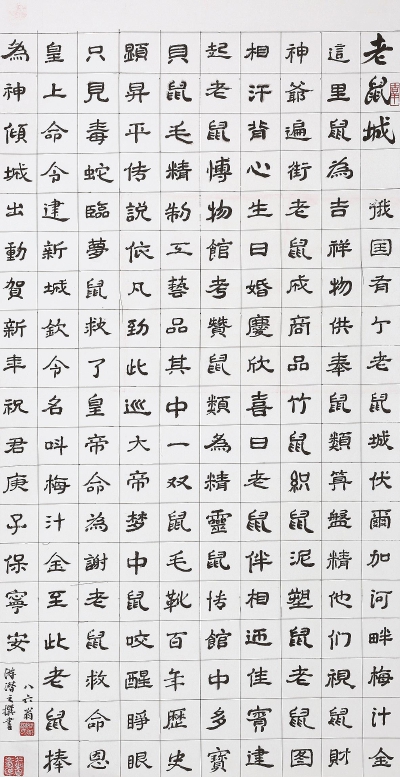 老鼠城 俄国有个老鼠城伏爾加河畔梅汁金
這里鼠為吉祥物供奉鼠類算盤精他們視鼠財
神爺遍街老鼠成商品竹鼠織鼠泥塑鼠老鼠图
相汗背心生日婚慶欣喜日老鼠伴相迊佳賓建
起老鼠愽物館考贊鼠類為精靈鼠館中多寶
貝鼠毛精制工藝品其中一双鼠毛靴百年歷史
顕昇平传說依凡劲此巡大帝梦中鼠咬醒睁眼
只見毒蛇臨夢鼠救了皇帝命為謝老鼠救命恩
皇上命令建新城欽令名叫梅汁金至此老鼠捧
為神傾城出動賀新年祝君庚子保寧安
八六翁
撰書